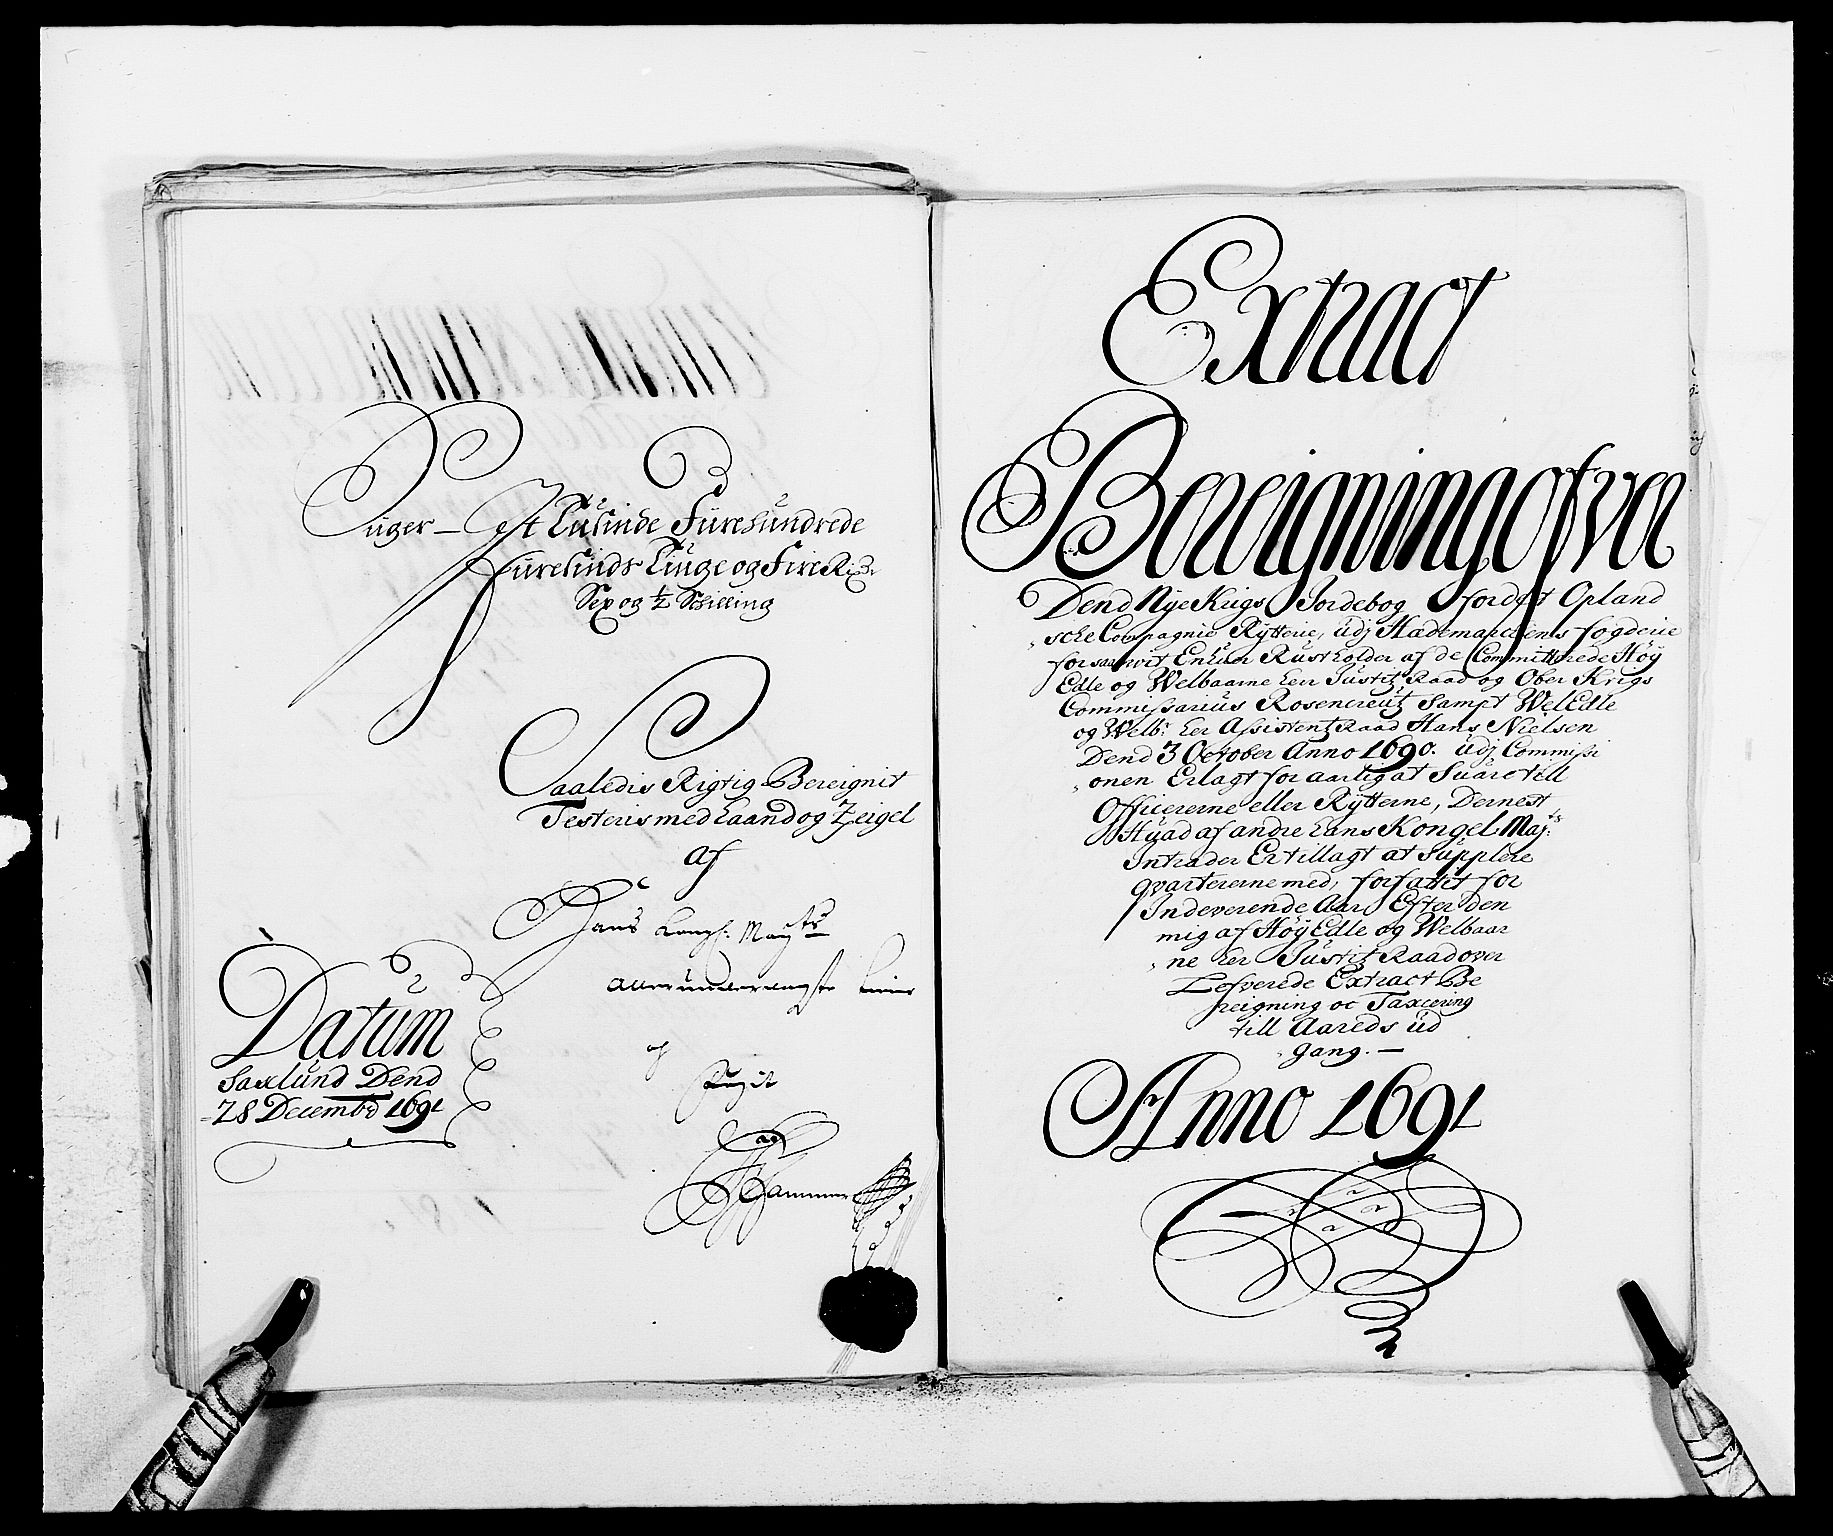 Siger - Et Tusinde Firehundrede
Firesinds Tiuge og Fire Rd:
Sex og ½ Schilling
Saaledis Rigtig Bereignit
Testeris med haand og Zeigel
af
Hans Kongl: Mayts
allerunderdanigste tiener
af
Fugit
Hammer
Datum
Saxlund Dend
28 Decembr 1691
Extract
Bereigning ofver
Dend Nye Krigs Jordebog for det Opland
sche Compagnie Rÿtterie, udj Hædemarckens fogderie
for saavit Enhuer Rustholder af de Committerede Høÿ
Edle og Welbaarne herr Justitz Raad og Ober Krigs
Commissarius Rosencreutz Sampt WelEdle
og Welb: her Assistentz Raad Hans Nielsen
Dend 3 October Anno 1690. udj Commissi
onen Erlagt for aarlig at Suare till
Officererne eller Rÿtterne, Dernest
Huad af andre hans Kongel. Maj:ts
Intrader Er tillagt at Supplere
qvartererne med, forfattet for
Indeverende Aar Efter den
mig af Høÿ Edle og Welbaar
ne her Justitz Raad over
Lefverede Extract Be
reigning oc Taxcering
till Aareds ud
gang. —
Anno 1691